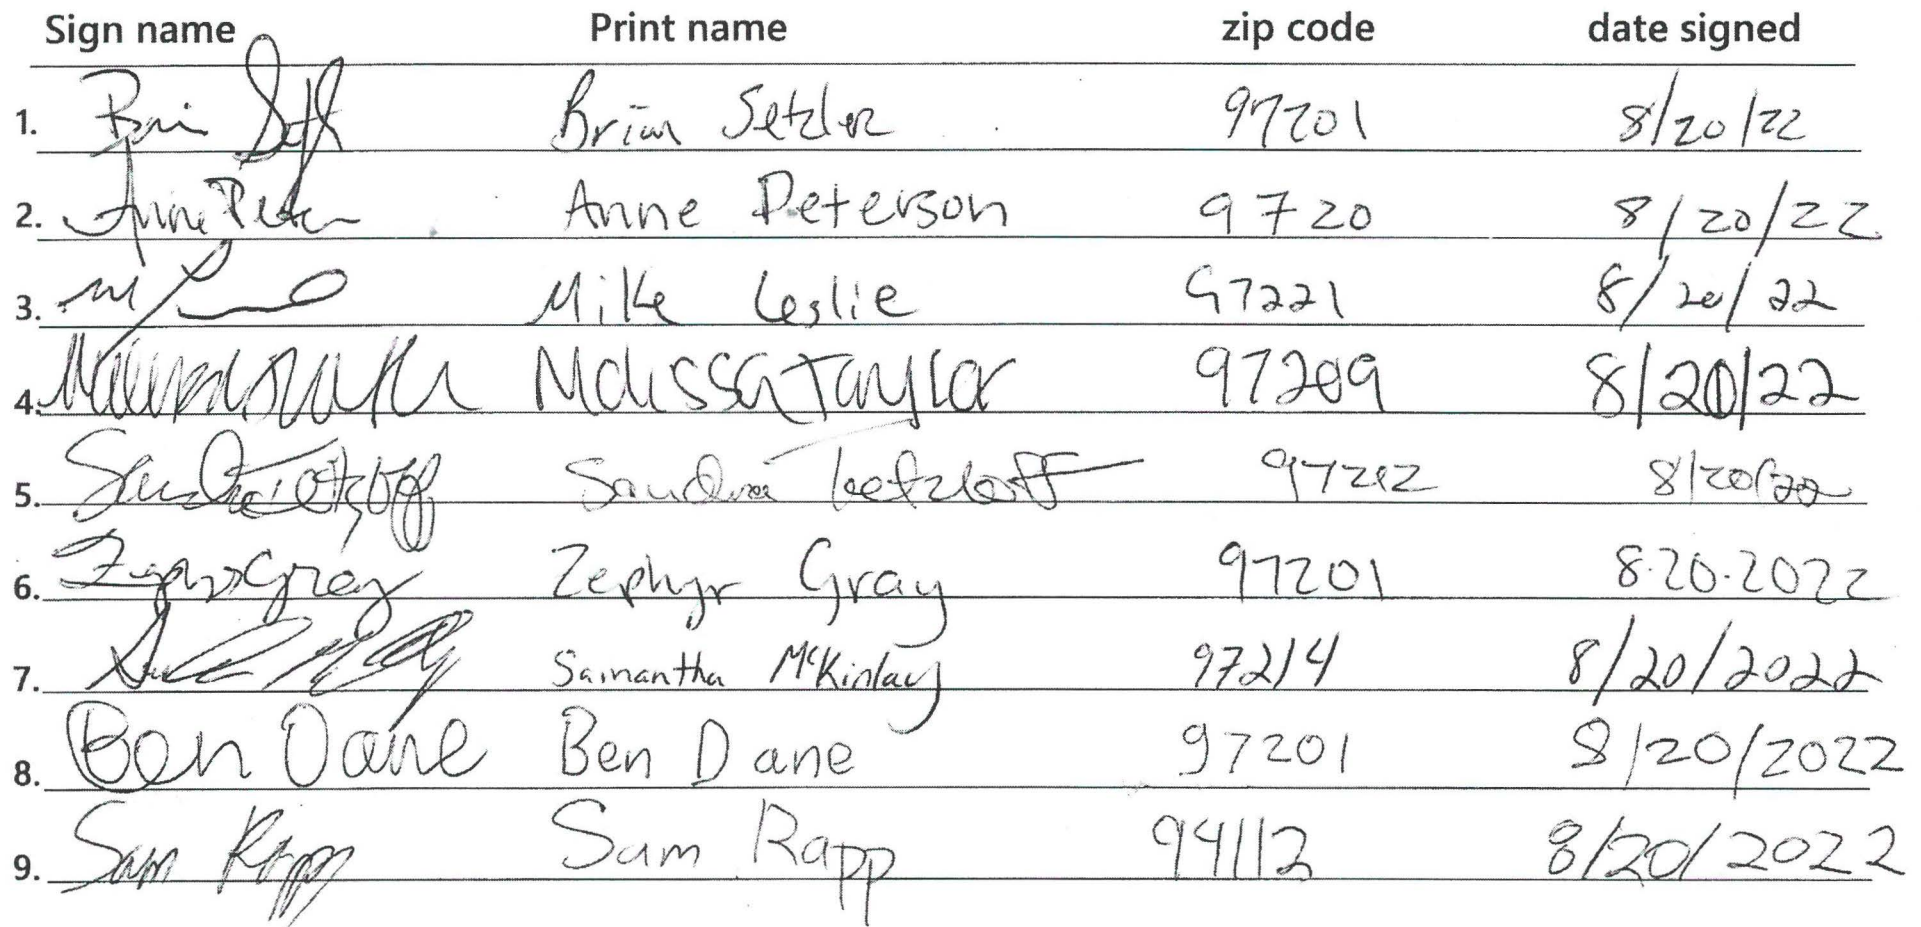 Sign name Print name zip code date signed
1. Brian Setzler 97201 8/20/22
2. Anne Peterson Anne Peterson 9720 8/20/22
3. Mike Leslie 97221 8/20/22
4. Melissa Taylor 97209 8/20/22
5. Sandra Tetzloff 97212 8/20/22
6. Zephyr Gray Zephyr Gray 97201 8.20.2022
7. Samantha McKinlay 97214 8/20/2022
8. Ben Dane Ben Dane 97201 8/20/2022
9. Sam Rapp Sam Rapp 94112 8/20/2022